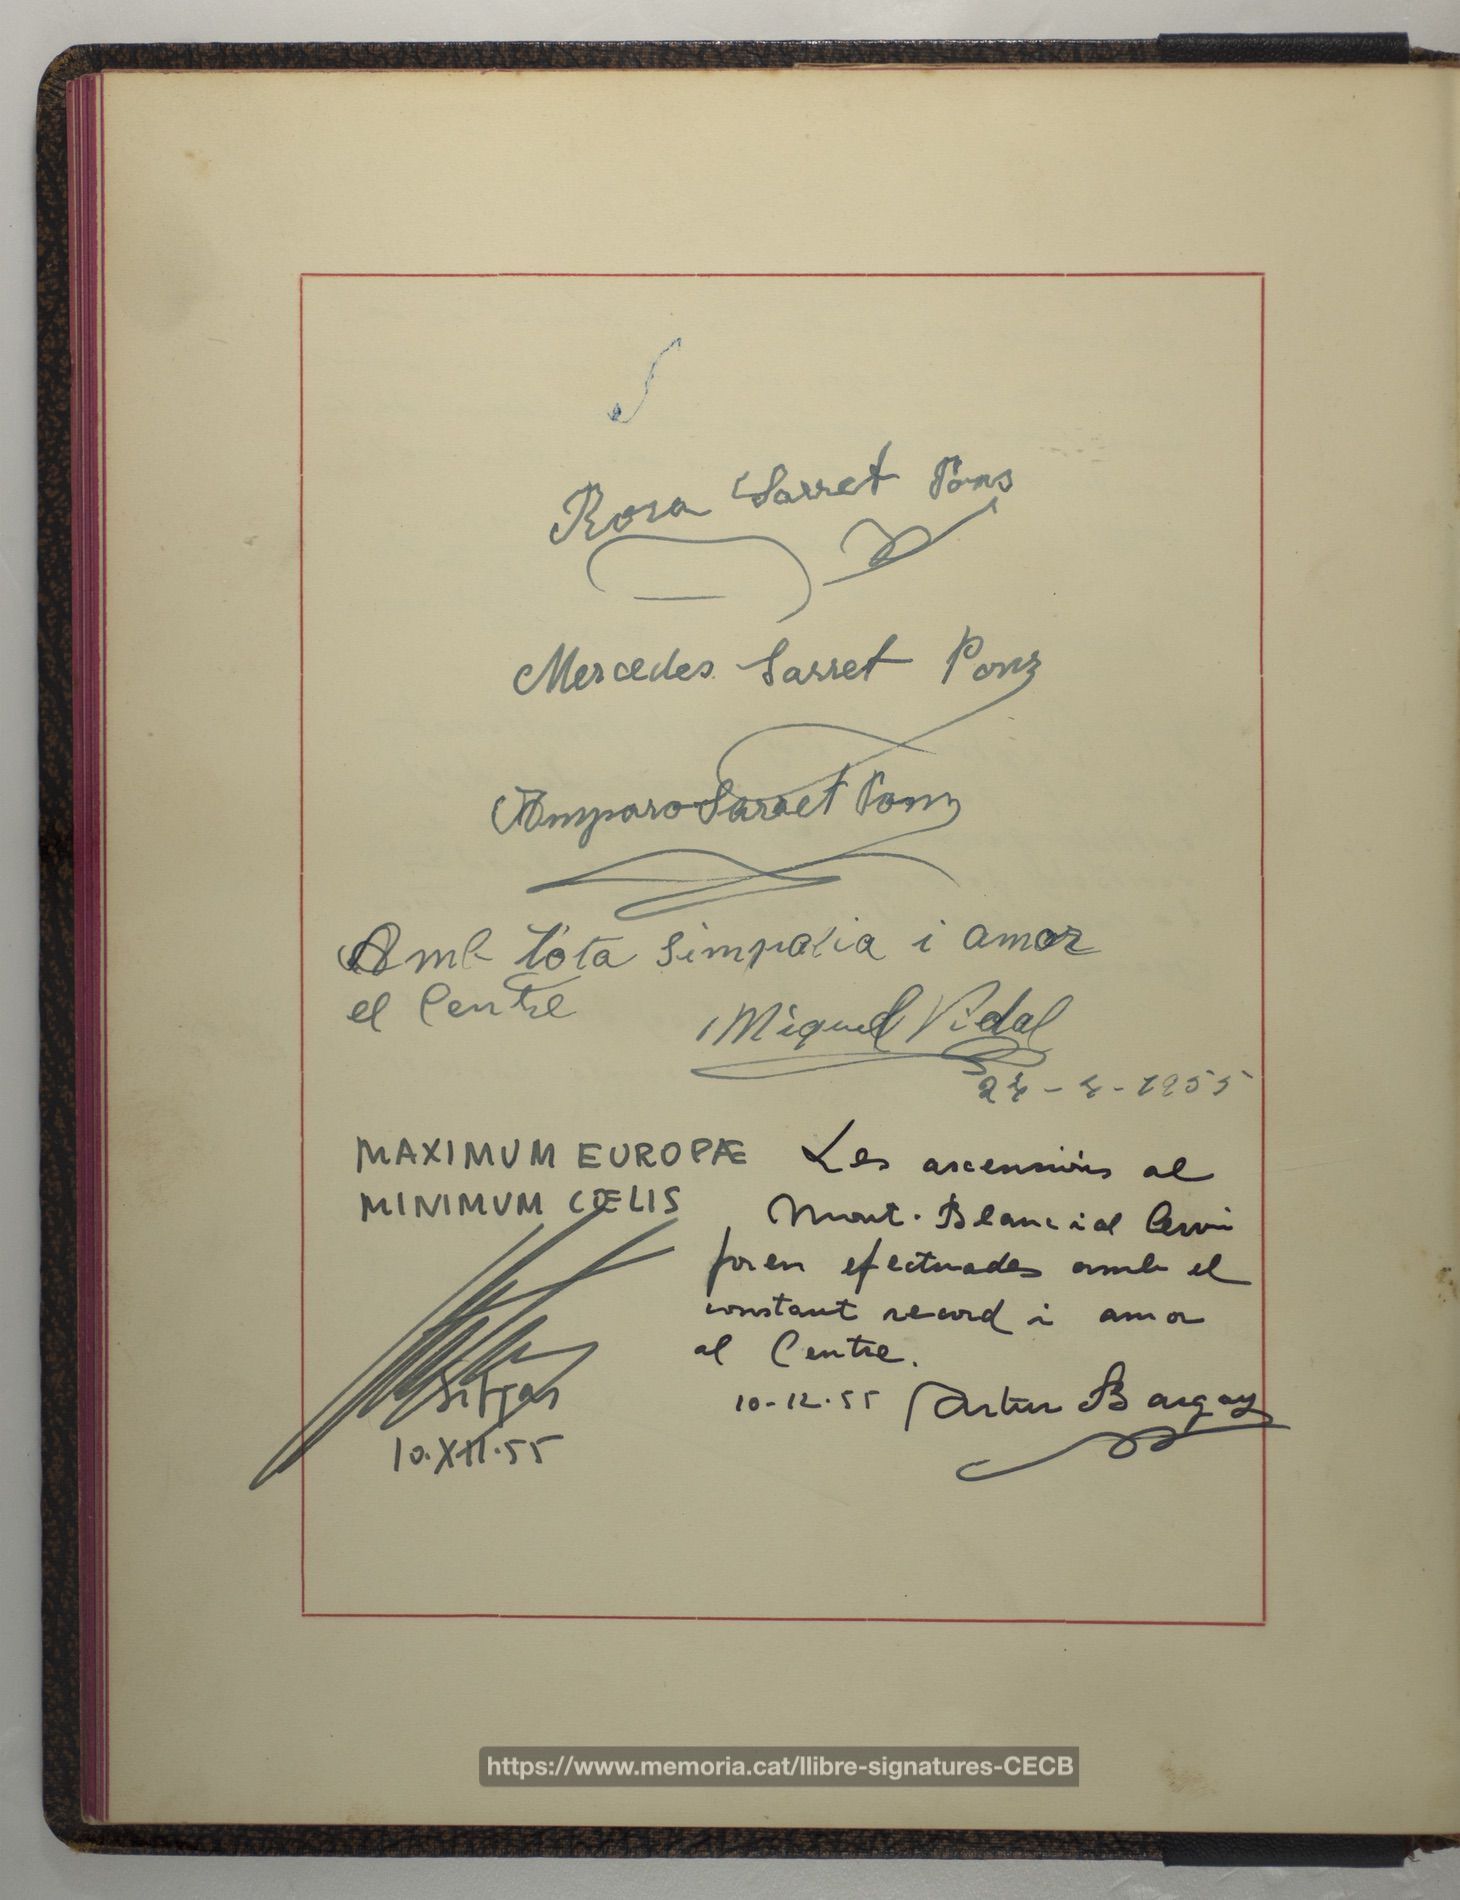 Rosa Sarret Pons
Mercedes Sarret Pons
Amparo Sarret Pons
Amb tota simpatia i amor
el Centre
Miquel Vidal
1955
MAXIMUM EUROPÆ
MINIMUM CŒLIS
Sitjas
10.XII.55
Les ascensións al
Mont-Blanc i al Cervi
foren efectuades amb el
constant record i amor
al Centre.
10-12-55 Artur Bargay
https://www.memoria.cat/llibre-signatures-CECB